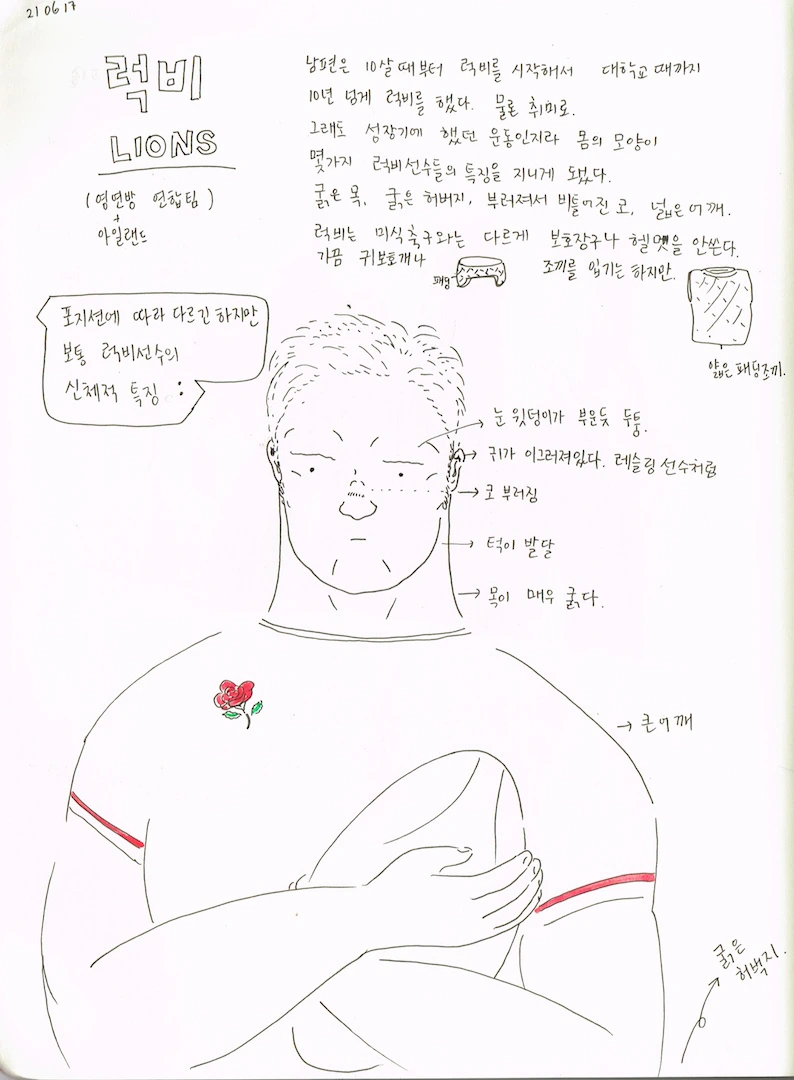 21 06 17
럭비
LIONS
(영연방 연합팀)
+
아일랜드
남편은 10살 때부터 럭비를 시작해서 대학교 때까지
10년 넘게 럭비를 했다. 물론 취미로.
그래도 성장기에 했던 운동인지라 몸의 모양이
몇가지 럭비선수들의 특징을 지니게 되었다.
굵은 목, 굵은 허버지, 부러져서 비틀어진 코, 넓은 어깨.
럭비는 미식축구와는 다르게 보호장구나 헬멧을 안쓴다.
가끔 귀보호개나 조끼를 입기는 하지만.
패딩
얇은 패딩조끼.
포지션에 따라 다르긴 하지만
보통 럭비선수의
신체적 특징 :
눈 윗텅이가 부운듯 두툼.
귀가 이그러져있다. 레슬링 선수처럼
코 부러짐
턱이 발달
목이 매우 굵다.
큰 어깨
굵은
허벅지.